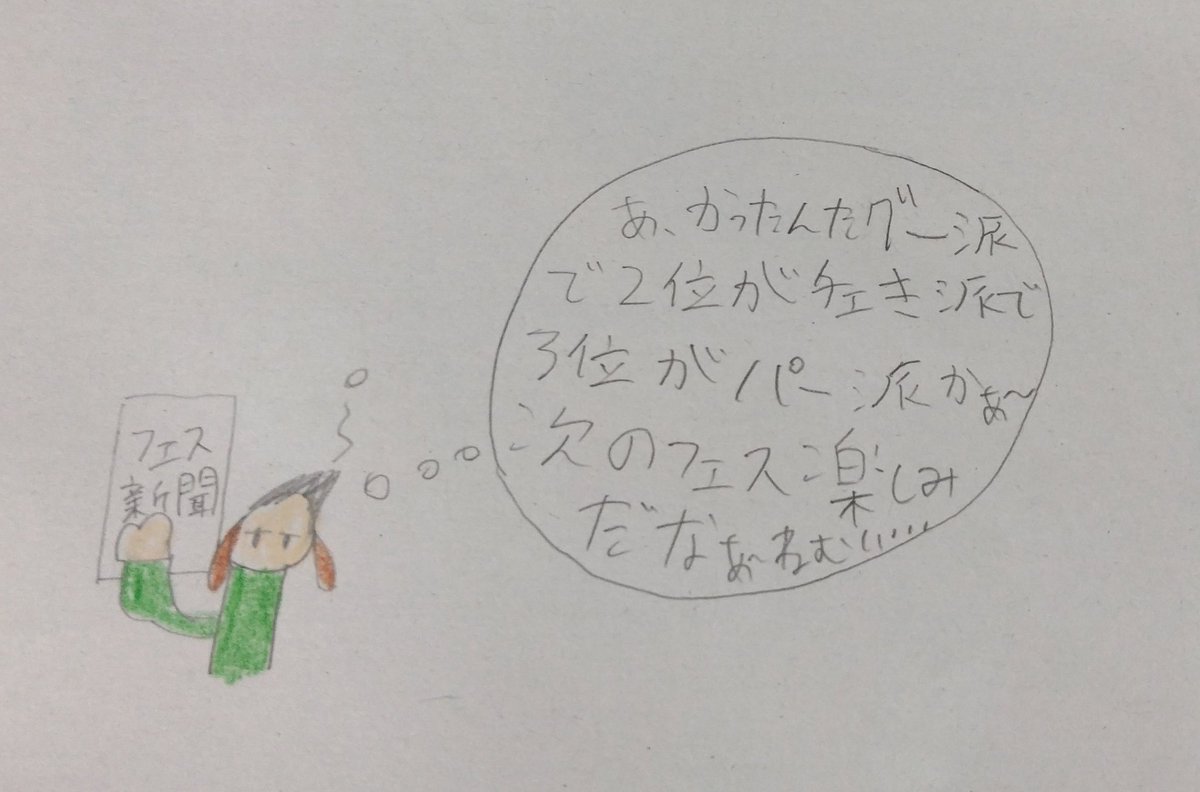 フェス
新聞
あ、かったんたグー派
で2位がチェき派で
3位がパー派かぁ〜
次のフェス楽しみ
だなぁ〜ねむい……